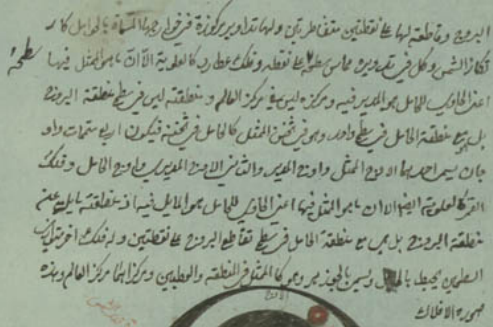 البروج ومقاطعة لها على نقطتين متقاطرتين ولها تداوير مركوزة في خوارجها المسماة بالحوامل كار
تكاز الشمس وكل في تدويره مماس سطحه على نقطة وفلك عطارد كالعلوية الا ان ما هو الممثل فيها
سطحه
اعنى الحاوي للحامل هو المدير فيه ومركزه ليس في مركز العالم ومنطقته ليس في سطح منطقة البروج
بل مع منطقة الحامل في سطح واحد وهو في ثخن الممثل كالحامل في ثخنه فيكون اربع متممات واو
جان يسمى احدهما الاوج الممثل واوج المدير والثاني الاوج المديري واوج الحامل وفلك
القمر كالعلوية ايضا الا ان ما هو الممثل فيها اعنى الحاوي للحامل هو المايل فيه اذ منطقته مايلة عن
منطقة البروج بل هي مع منطقة الحامل في سطح تقاطع البروج على نقطتين وله فلك اخر
السطحين يحيط بالمايل ويسمى بالجوزهر وهو كالممثل في المنطقة والقطبين ومركزاهما مركز العالم وهذه
صورة الافلاك
الاوج